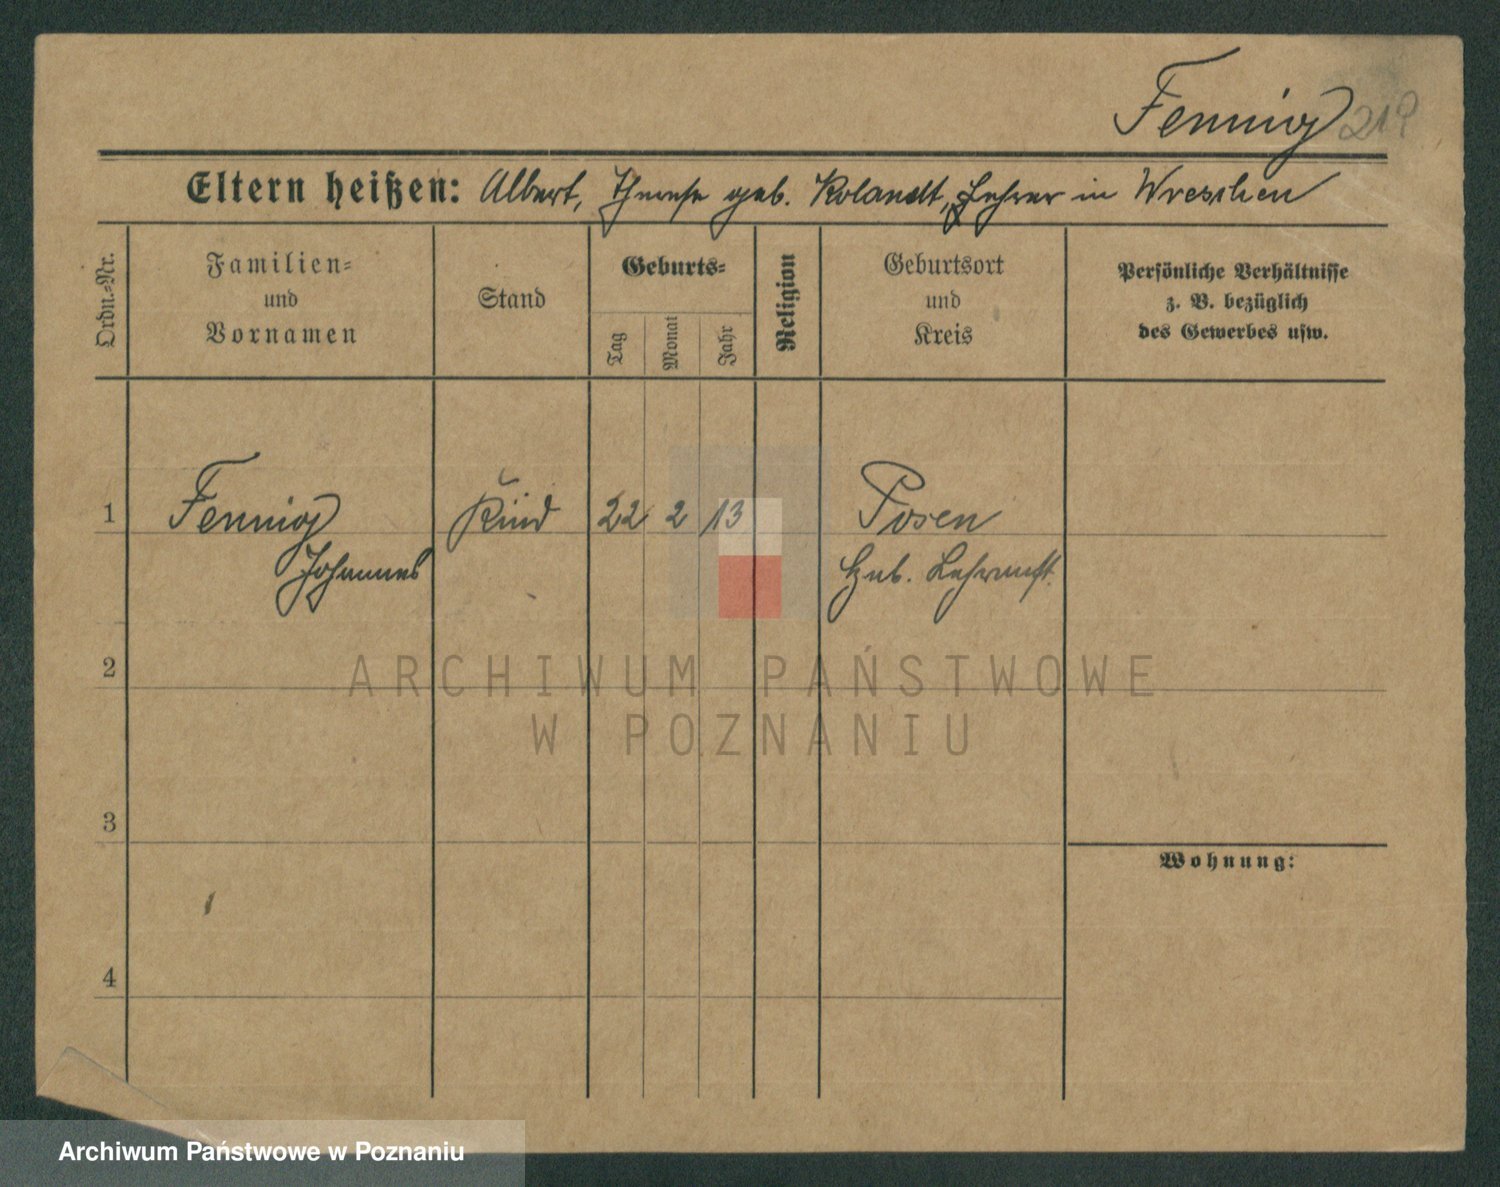 Fennig 219
Eltern heißen: Albert, Therese geb. Rolandt, Lehrer in Wreschen
Ordn.-Nr.
Familien-
und
Vornamen
Stand
Geburts-
Tag
Monat
Jahr
Religion
Geburtsort
und
Kreis
Persönliche Verhältnisse
z. B. bezüglich
des Gewerbes usw.
1 Fennig Kind 22 2 13 Posen
Johannes Heb. Lehranst.
2
ARCHIWUM PAŃSTWOWE
W POZNANIU
3
Wohnung:
4
Archiwum Państwowe w Poznaniu